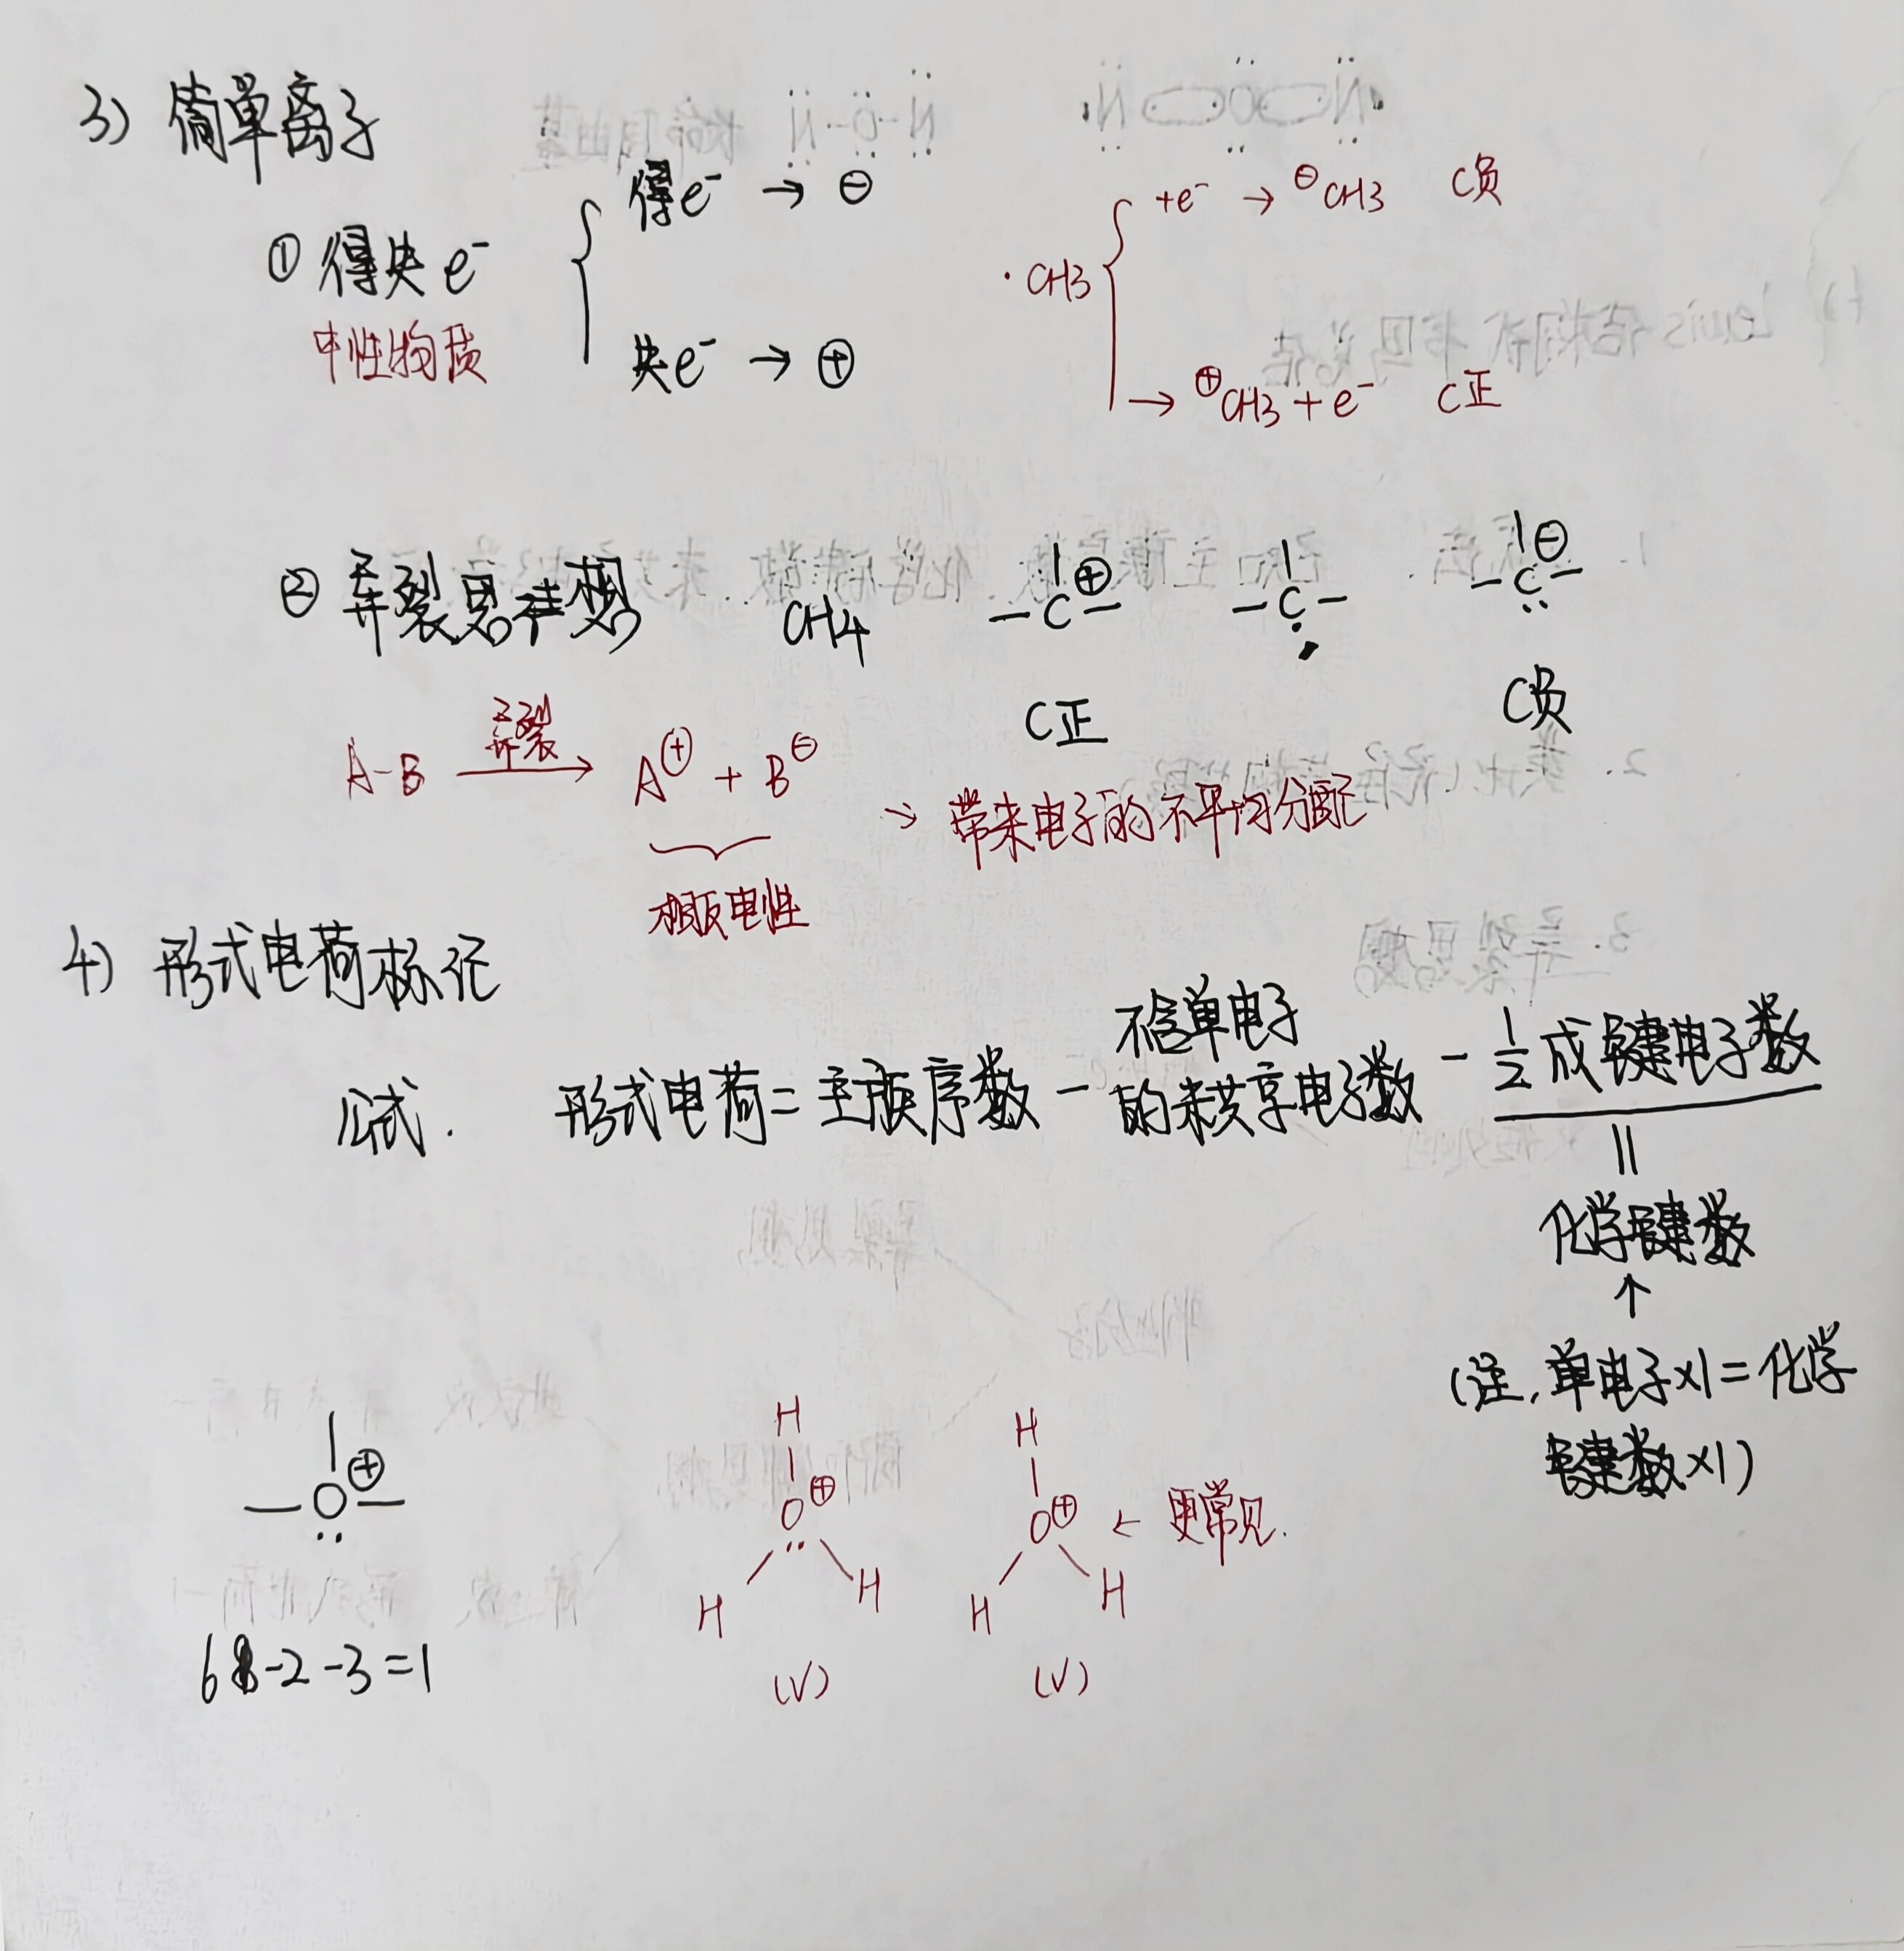 3) 简单离子
① 得失 e⁻
中性物质
得e⁻ → ⊖
失e⁻ → ⊕
·CH3
+e⁻ → ⊖CH3 C负
→ ⊕CH3 + e⁻ C正
② 异裂思想 CH4
C ⊕
C正
C
C ⊖
C负
A-B 异裂 → A⊕ + B⊖
相反电性
→ 带来电子的不平均分配
4) 形式电荷标记
公式. 形式电荷 = 主族序数 - 不含单电子的未共享电子数 - 1/2 成键电子数
=
化学键数
↑
(注, 单电子×1 = 化学
键数×1)
O ⊕
6-2-3=1
H
O ⊕
H H
(√)
H
O ⊕ ← 更常见.
H H
(√)